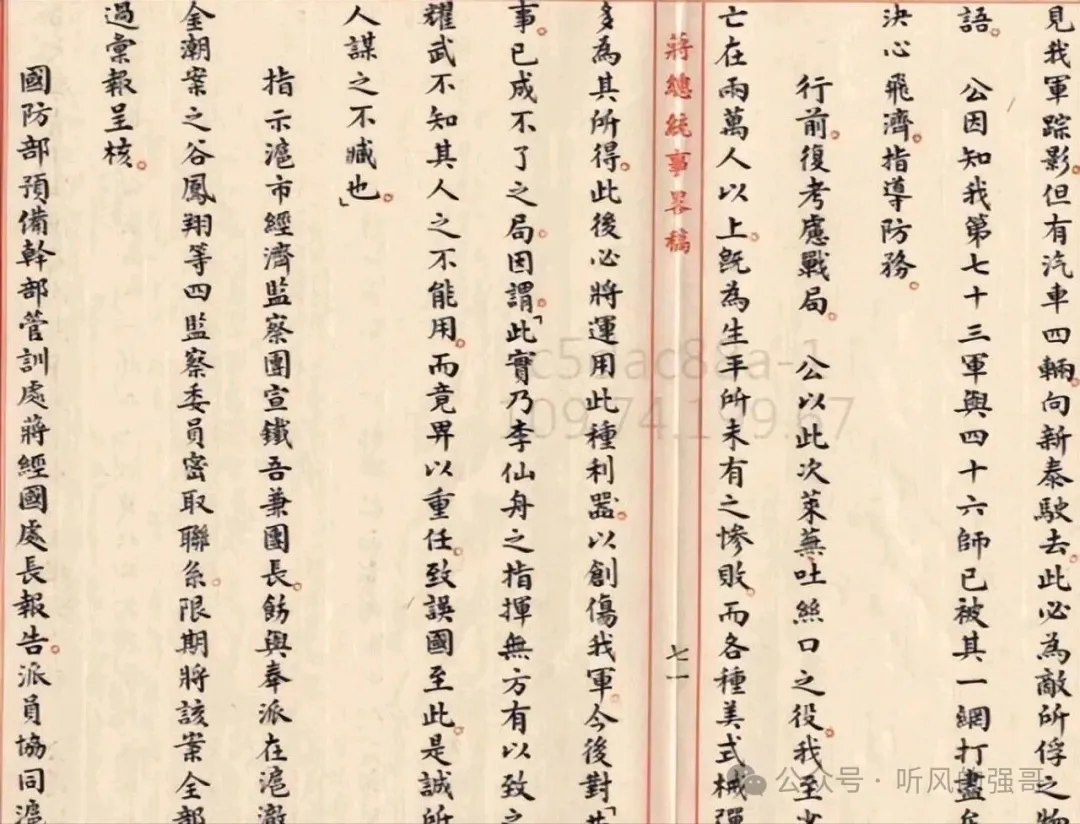 見我軍踪影。但有汽車四輛。向新泰駛去。此必為敵所俘之物
語。　公因知我第七十三軍與四十六師已被其一網打盡矣
決心飛濟。指導防務。
行前。復考慮戰局。　公以此次萊蕪吐絲口之役。我至少
亡在兩萬人以上。既為生平所未有之慘敗。而各種美式械彈
蔣總統事畧稿
七一
多為其所得。此後必將運用此種利器。以創傷我軍。今後對「共
事。已成不了之局。因謂。「此實乃李仙舟之指揮無方有以致之
耀武不知其人之不能用。而竟畀以重任。致誤國至此。是誠所
人謀之不臧也。」
指示滬市經濟監察團宣鐵吾兼團長。飭與奉派在滬澈
金潮案之谷鳳翔等四監察委員密取聯系。限期將該案全部
過彙報呈核。
國防部預備幹部管訓處蔣經國處長報告。派員協同滬
109.74.199.67
公众号·听风的强哥